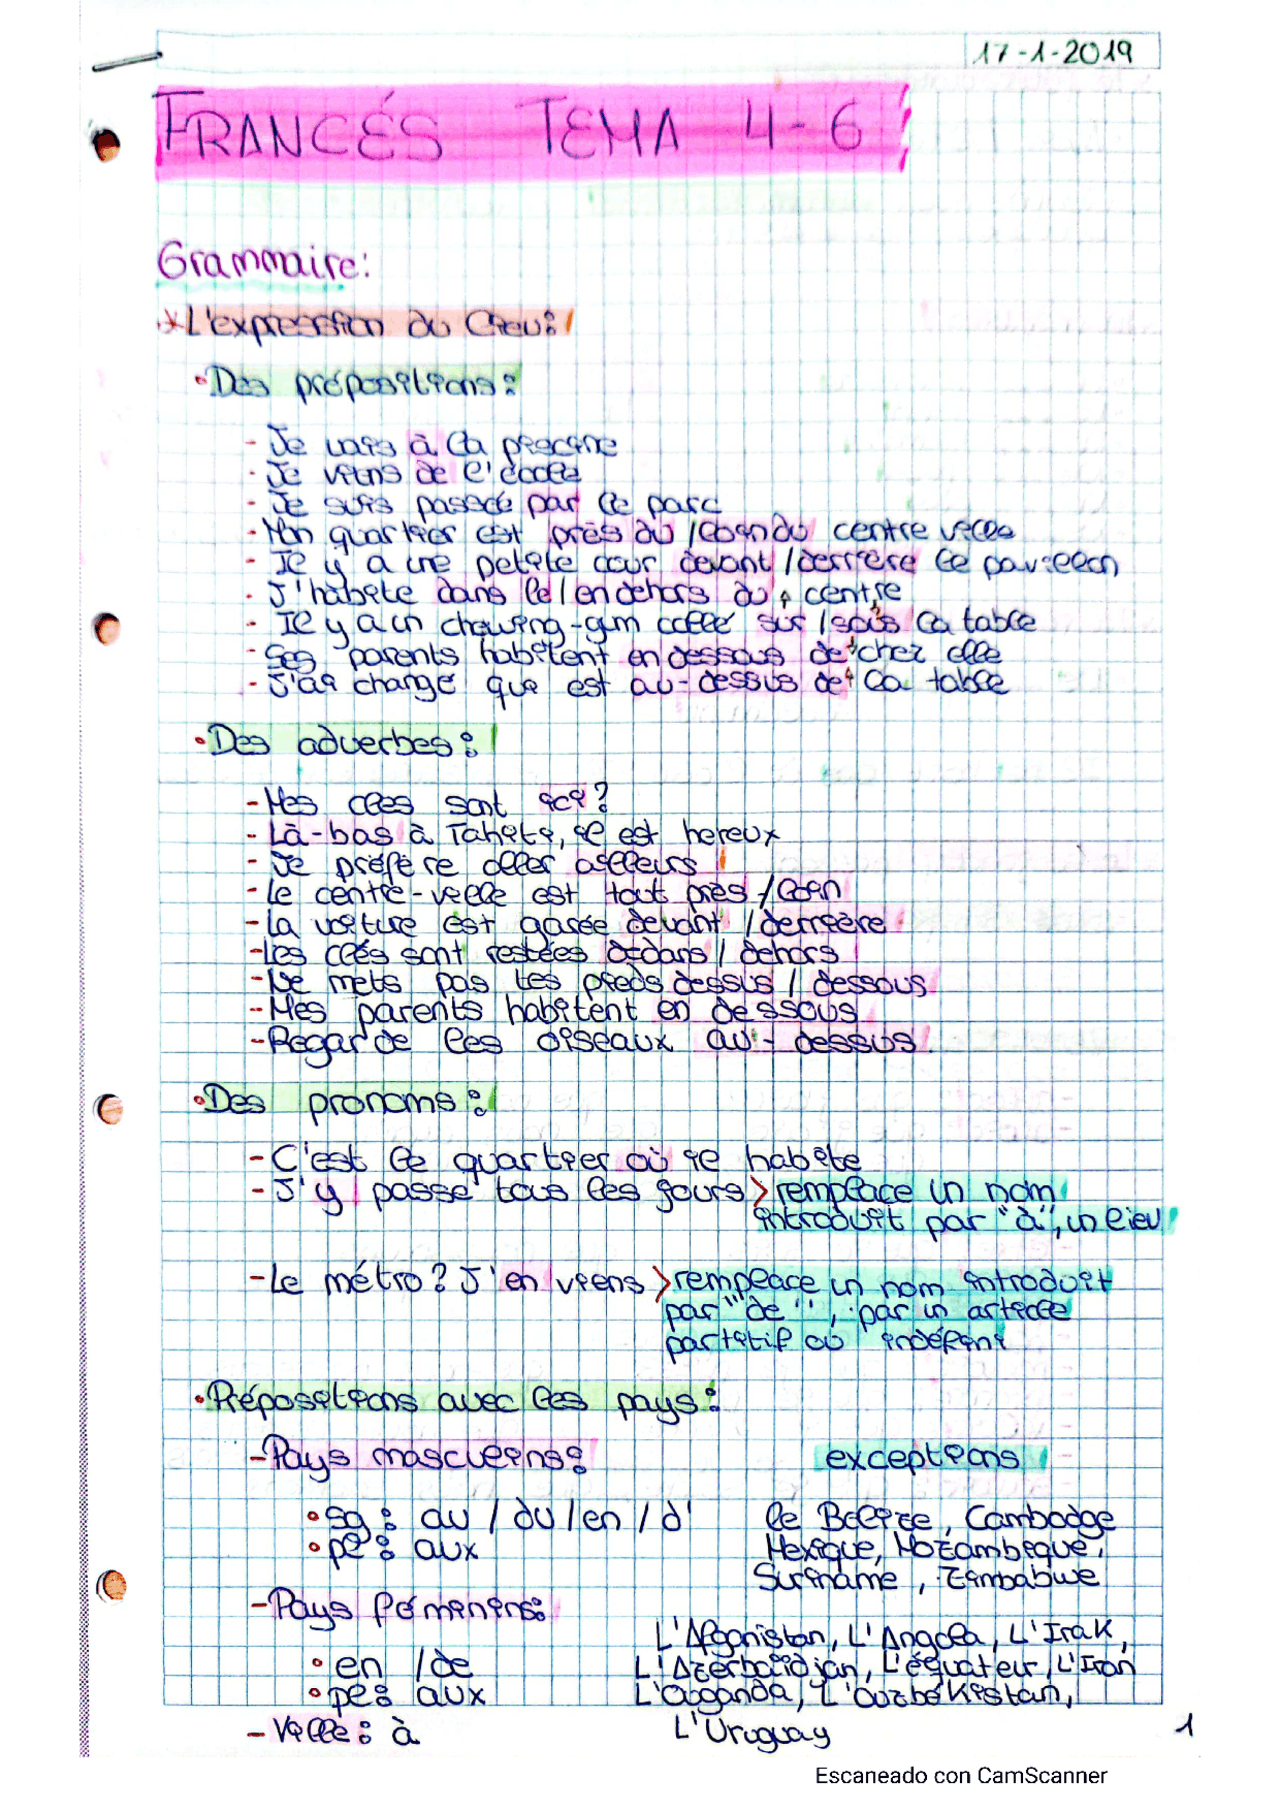 17-1-2019
FRANCÉS TEMA 4-6
Grammaire:
*L'expression du lieu:
•Des prépositions:
- Je vais à la piscine
- Je viens de l'école
- Je suis passée par le parc
- Mon quartier est près du /loin du centre ville
- Il y a une petite cour devant /derrière le pavillon
- J'habite dans le / en dehors du centre
- Il y a un chewing-gum collé sur /sous la table
- Ses parents habitent en dessous de chez elle
- J'ai changé qui est au-dessus de la table
•Des adverbes:
- Mes clées sont ici?
- Là-bas à Tahiti, il est hereux
- Je préfère aller ailleurs
- Le centre-ville est tout près /loin
- La voiture est garée devant /derrière
- Les clés sont restées dedans / dehors
- Ne mets pas tes pieds dessus / dessous
- Mes parents habitent en dessous
- Regarde les oiseaux au-dessus.
•Des pronoms:
- C'est le quartier où je habite
- J'y passe tous les jours > remplace un nom
introduit par "à", un lieu
- Le métro? J'en viens > remplace un nom introduit
par "de", par un article
partitif où indéfini
•Prépositions avec les pays:
- Pays masculins: exceptions
•sg: au / du / en / d' le Belize, Cambodge
•pl: aux Mexique, Mozambique,
Suriname, Zimbabwe
- Pays féminins:
L'Afganistan, L'Angola, L'Irak,
•en /de L'Azerbaïdjan, L'équateur, L'Iran
•pl: aux L'ouganda, L'ouzbékistan,
- Ville: à L'Uruguay
1
Escaneado con CamScanner